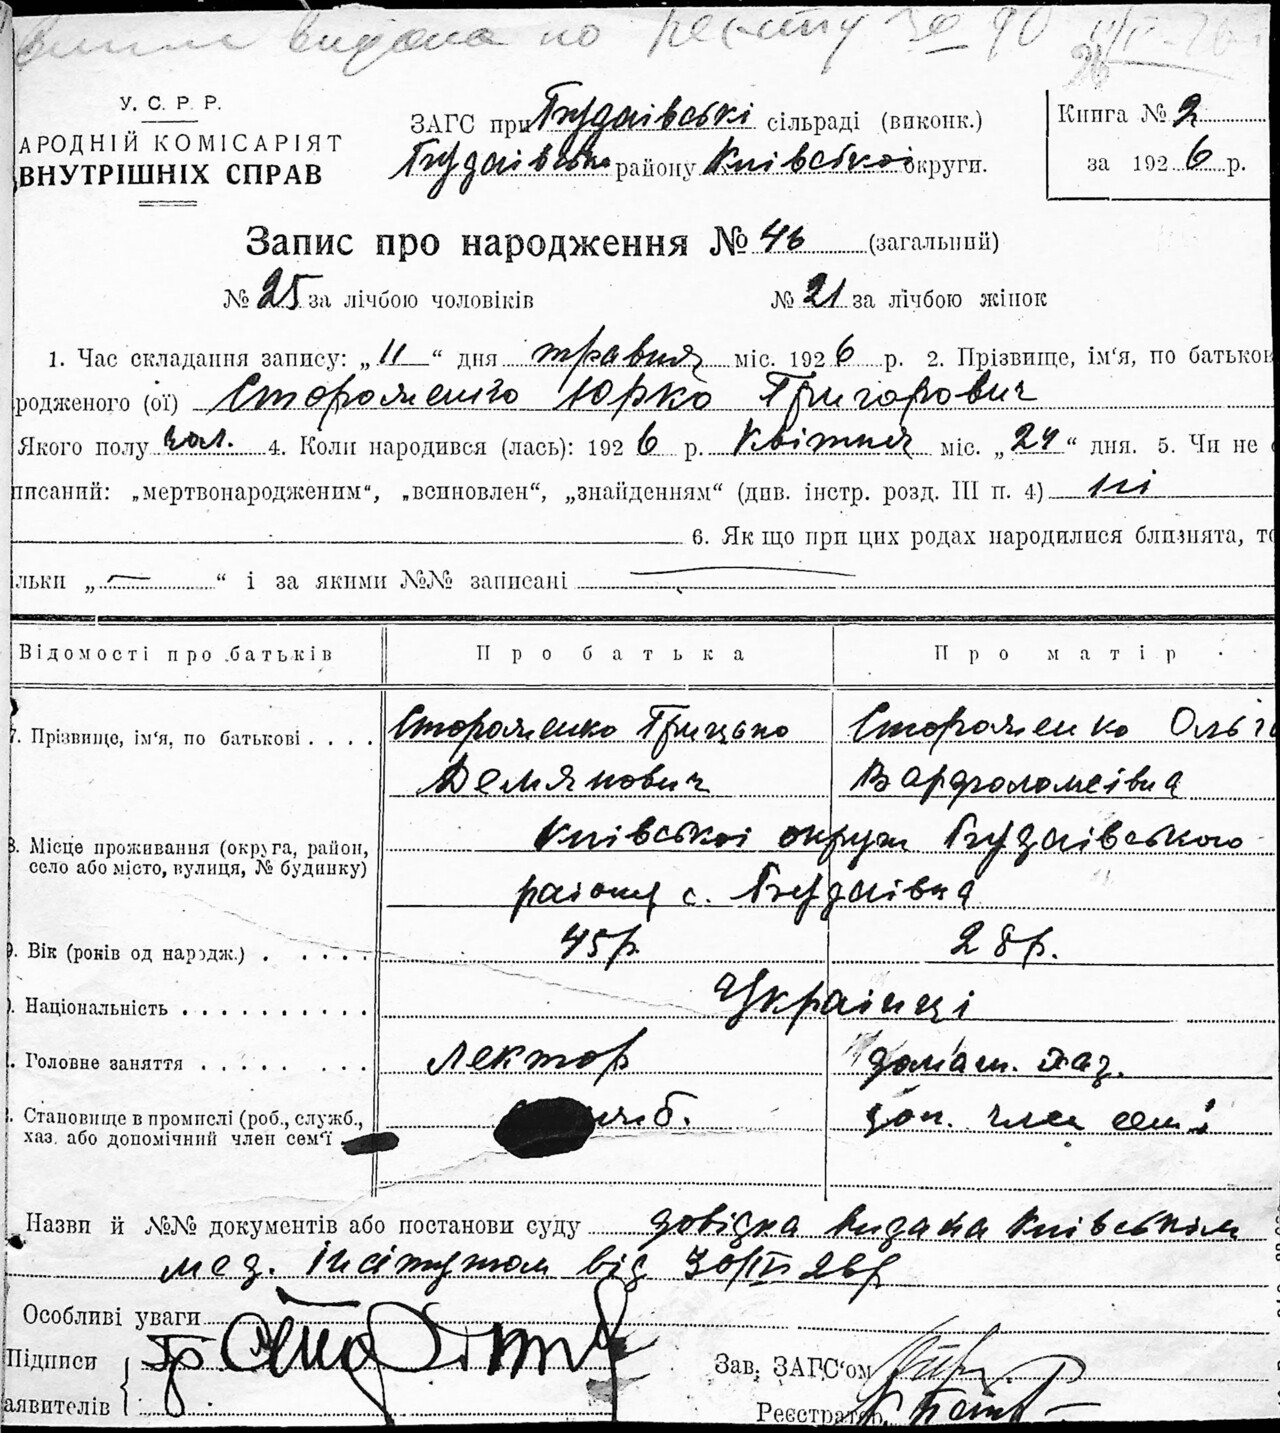 видана по реєстру № 90
26
У. С. Р. Р.
АРОДНІЙ КОМІСАРІЯТ
ВНУТРІШНІХ СПРАВ
ЗАГС при Будаівські сільраді (виконк.)
Будаівськ району Київськоі округи.
Книга № 2
за 1926 р.
Запис про народження № 46 (загальний)
№ 25 за лічбою чоловіків № 21 за лічбою жінок
1. Час складання запису: „11“ дня травня міс. 1926 р. 2. Прізвище, ім'я, по батьков
родженого (ої) Стороженко Юрко Григорович
Якого полу чол. 4. Коли народився (лась): 1926 р. Квітня міс. „24“ дня. 5. Чи не
писаний: „мертвонародженим“, „всиновлен“, „знайденням“ (див. інстр. розд. III п. 4) ні
6. Як що при цих родах народилися близнята, то
льки „—“ і за якими №№ записані —
Відомості про батьків Про батька Про матір
7. Прізвище, ім'я, по батькові . . . . Стороженко Грицько Стороженко Ольга
Демянович Варфоломеівна
8. Місце проживання (округа, район, село або місто, вулиця, № будинку) Киівськоі округи Будаівського
району с. Будаівка
9. Вік (років од народж.) . . . . . 45 р. 28 р.
Національність . . . . . . . . . . Украінці
Головне заняття . . . . . . . . лектор домаш. хаз.
Становище в промислі (роб., служб., хаз. або допомічний член сем'ї служб. доп. член семі
Назви й №№ документів або постанови суду довідка видана Київським
мед. Інститутом від 30/IV 26 р
Особливі уваги
Підписи
аявителів
Зав. ЗАГС'ом
Реєстратор